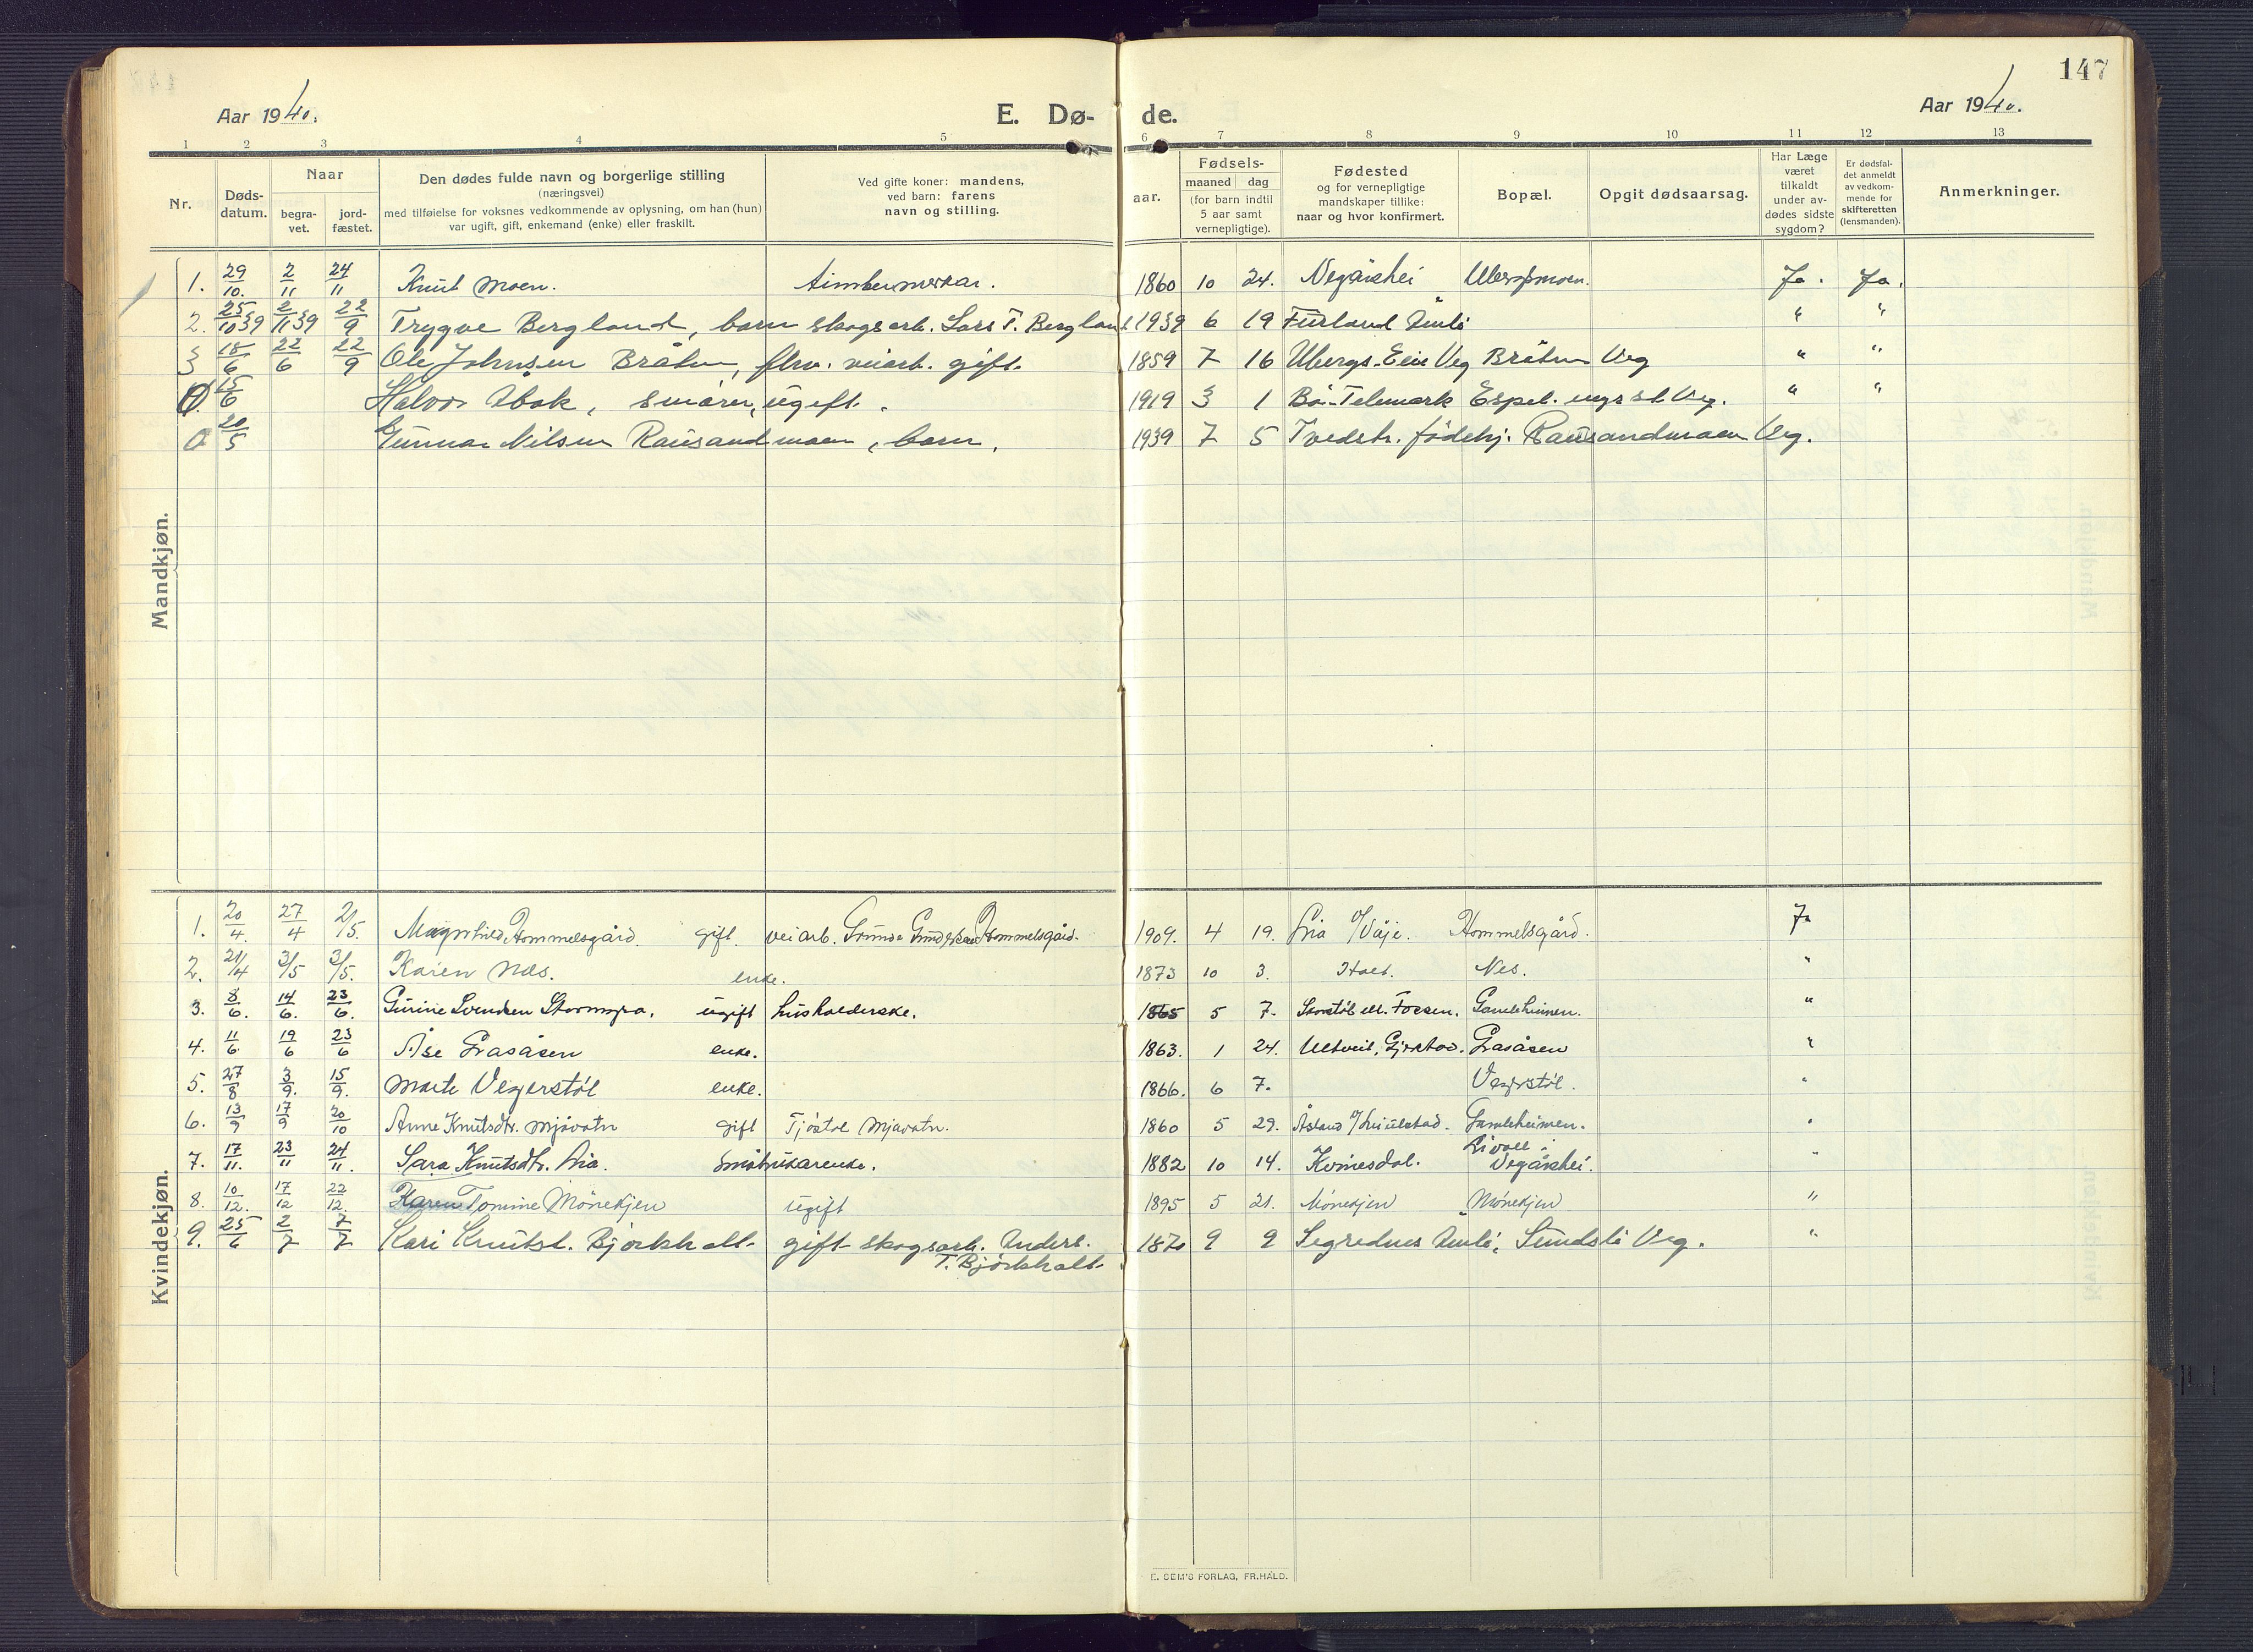 147
Aar 1940. E. Dø- de. Aar 1940.
1 2 3 4 5 6 7 8 9 10 11 12 13
Nr. Døds-datum. Naar begra-vet. jord-fæstet. Den dødes fulde navn og borgerlige stilling (næringsvei) med tilføielse for voksnes vedkommende av oplysning, om han (hun) var ugift, gift, enkemand (enke) eller fraskilt. Ved gifte koner: mandens, ved barn: farens navn og stilling. aar. Fødsels- maaned dag (for barn indtil 5 aar samt vernepligtige). Fødested og for vernepligtige mandskaper tillike: naar og hvor konfirmert. Bopæl. Opgit dødsaarsag. Har Læge været tilkaldt under av-dødes sidste sygdom? Er dødsfal-det anmeldt av vedkom-mende for skifteretten (lensmanden). Anmerkninger.
Mandkjøn.
1. 29/10. 2/11 24/11 Knut Moen. timbermerkar. 1860 10 24. Vegårshei Ja. Ja.
2. 25/10 39 2/11 39 22/9 Trygve Bergland, barn skogsarb. Lars T. Bergland 1939 6 19 Furland Åmli " "
3 18/6 22/6 22/9 Ole Johnsen Bråten, fhv. veiarb. gift. 1859 7 16 Ubergs. Eie Veg Bråten Veg " "
0. 15/6 Halvor Åbak, ugift. 1919 3 1 Bø-Telemark Espel. Veg. " "
0 20/5 Gunnar Nilsen Rausandmoen, barn. 1939 7 5 Tvedestr. fødehj. Rausandmoen Veg.
Kvindekjøn.
1. 20/4. 27/4 2/5. Magnhild Hommelsgård. gift. veiarb. Hommelsgård. 1909. 4 19. Lia p/Våje. Hommelsgård. Ja
2. 21/4 3/5 3/5. Karen Næs. enke. 1873 10 3. Holt. Nes. "
3. 8/6. 14/6. 23/6. Gurine Svendsen Stormyra. ugift husholderske. 1865 5 7. Gamleheimen. "
4. 11/6. 19/6 23/6 Åse Grasåsen enke. 1863. 1 24. Ulltveit, Gjerstad. Grasåsen "
5. 27/8 3/9. 15/9. Marte Vegerstøl enke. 1866. 6 7. Vegerstøl. "
6. 13/9 17/9 20/10 Anne Knutsdtr. Mjåvatn gift Tjøstol Mjåvatn. 1860 5 29. Åsland Gamleheimen. "
7. 17/11. 23/11 24/11. Sara Knutsdtr. Lia. småbrukarenke. 1882 10 14. Kvinesdal. Livoll i Vegårshei. "
8. 10/12. 17/12 22/12. Karen Tomine Mønekjen ugift 1895 5 21. Mønekjen Mønekjen "
9. 25/6 2/7 7/7 Kari Knutsd. Bjørkholt gift skogsarb. Anders.
T. Bjørkholt 1870 9 9 Segrednes Åmli. Sundsli Veg. "
E. SEM'S FORLAG, FR.HALD.